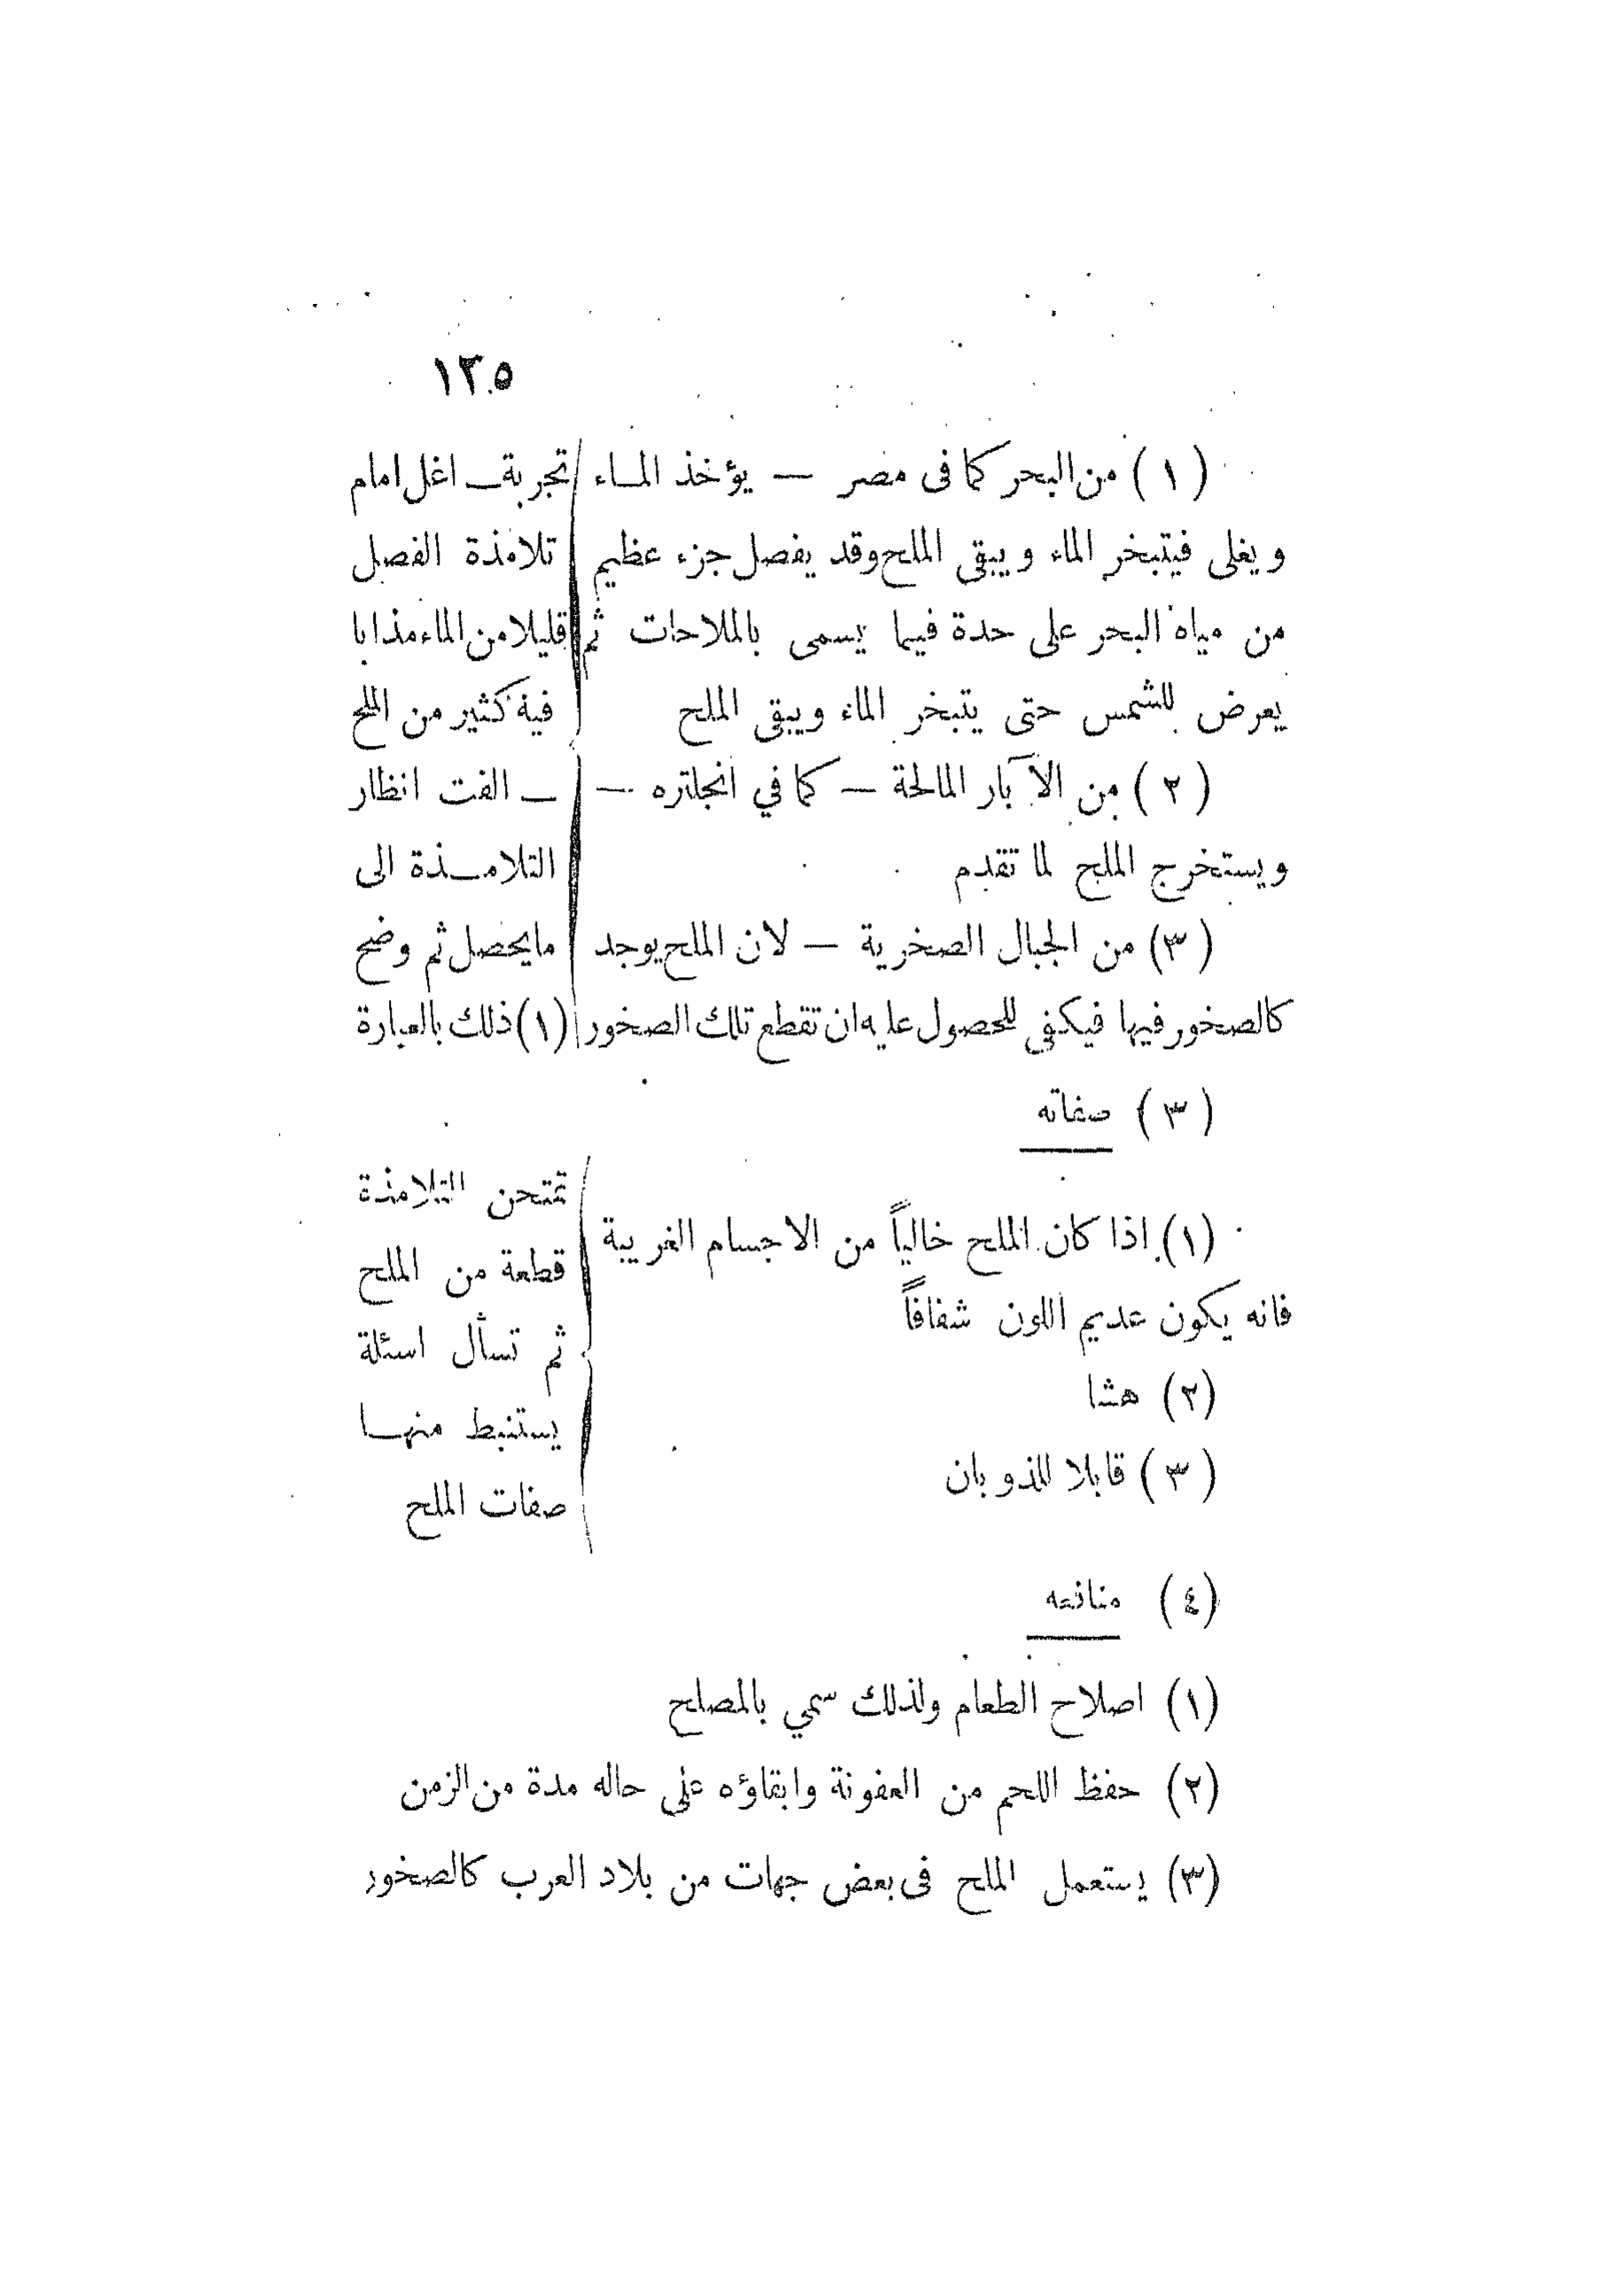 ١٣٥
(١) من البحر كما فى مصر — يؤخذ المـاء
ويغلى فيتبخر الماء ويبقى الملح وقد يفصل جزء عظيم
من مياه البحر على حدة فيما يسمى بالملاحات ثم
يعرض للشمس حتى يتبخر الماء ويبقى الملح
(٢) من الآبار المالحة — كما في انجلتره —
ويستخرج الملح لما تقدم
(٣) من الجبال الصخرية — لان الملح يوجد
كالصخور فيها فيكفى للحصول عليه ان تقطع تلك الصخور
تجربة ـ اغل امام
تلامذة الفصل
قليلا من الماء مذابا
فيه كثير من الملح
ـ الفت انظار
التلامـذة الى
مايحصل ثم وضح
(١) ذلك بالعبارة
(٣) صفاته
(١) اذا كان الملح خالياً من الاجسام الغريبة
فانه يكون عديم اللون شفافاً
(٢) هشا
(٣) قابلا للذوبان
تمتحن التلامذة
قطعة من الملح
ثم تسأل اسئلة
يستنبط منهـا
صفات الملح
(٤) منافعه
(١) اصلاح الطعام ولذلك سمي بالمصلح
(٢) حفظ اللحم من العفونة وابقاؤه على حاله مدة من الزمن
(٣) يستعمل الملح فى بعض جهات من بلاد العرب كالصخور